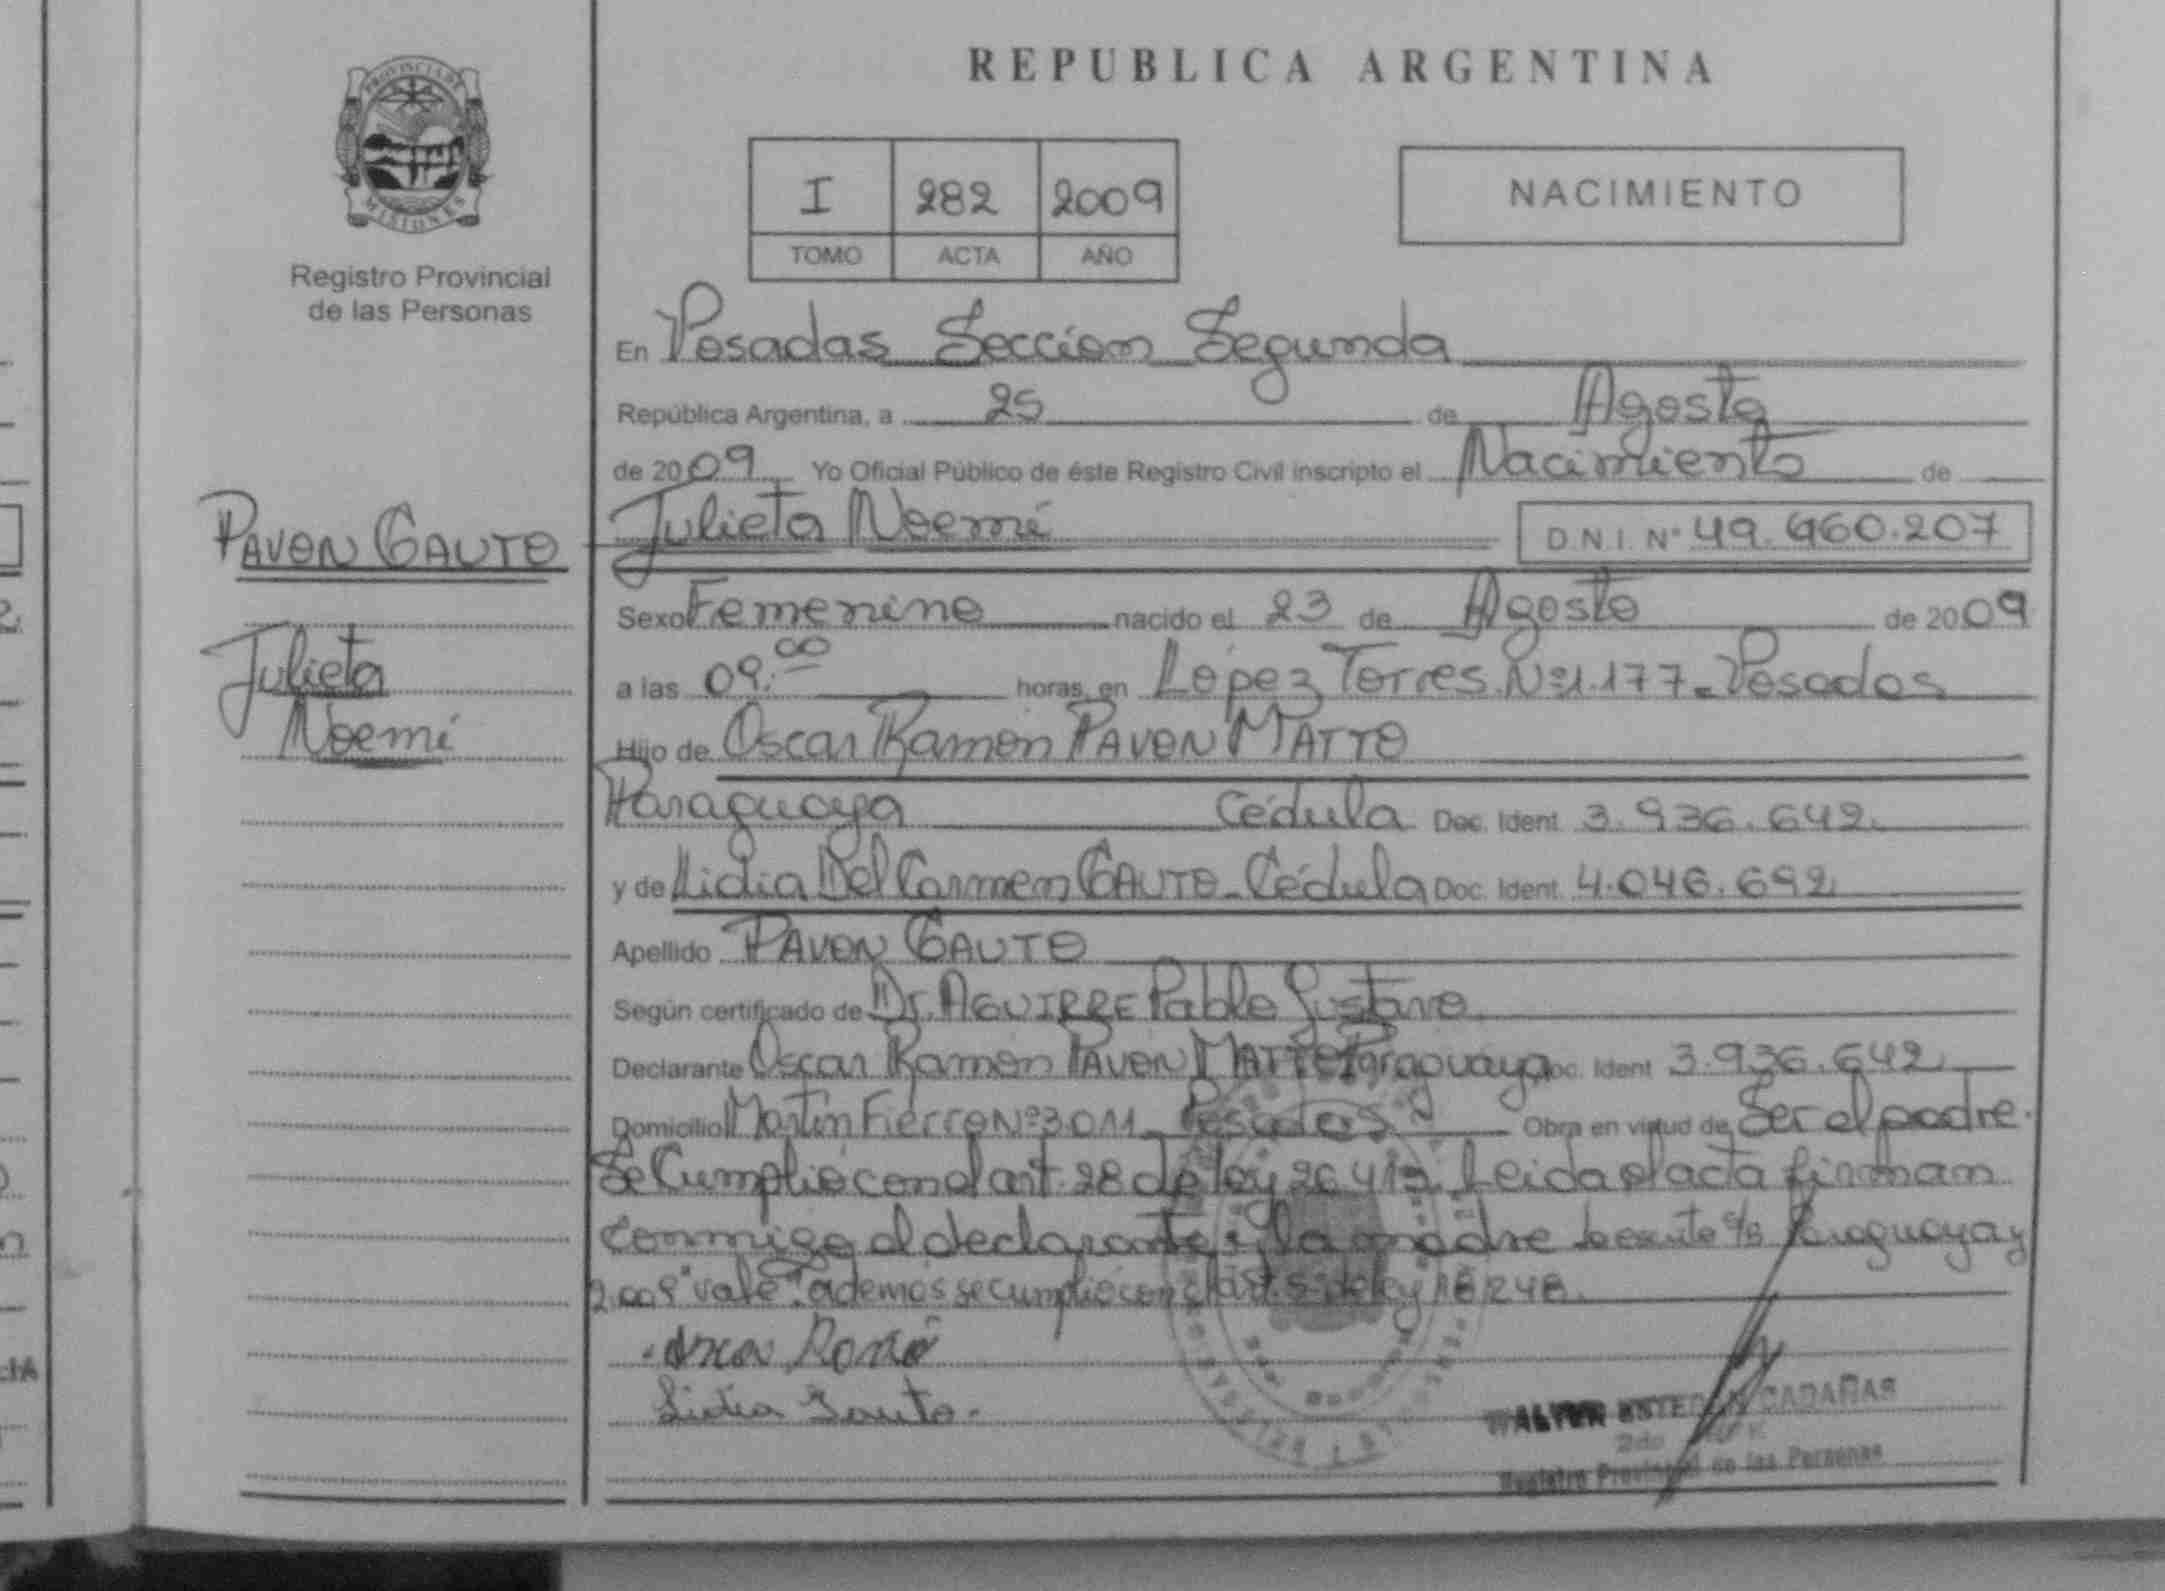 PROVINCIA DE
MISIONES
Registro Provincial
de las Personas
PAVON GAUTO
Julieta
Noemí
REPUBLICA ARGENTINA
I 282 2009
TOMO ACTA AÑO
NACIMIENTO
En Posadas Sección Segunda
República Argentina, a 25 de Agosto
de 2009 Yo Oficial Público de éste Registro Civil inscripto el Nacimiento de
Julieta Noemí D.N.I. N° 49.960.207
Sexo Femenino nacido el 23 de Agosto de 2009
a las 09:00 horas, en López Torres Nº 1.177 - Posadas
Hijo de Oscar Ramon PAVON MATTO
Paraguaya Cédula Doc. Ident. 3.936.642
y de Lidia Del Carmen GAUTO - Cédula Doc. Ident. 4.046.692
Apellido PAVON GAUTO
Según certificado de Dr. AGUIRRE Pablo Gustavo
Declarante Oscar Ramon PAVON MATTO Paraguaya Doc. Ident 3.936.642
Domicilio Martin Fierro Nº 3.011 Posadas Obra en virtud de Ser el padre.
Se Cumplió con el art. 28 de ley 26.413. Leida el acta firman
conmigo el declarante y la madre Paraguaya y
2.009 "vale". ademas se cumplió con el art. 5 de ley 18.248.
Lidia Gauto.
WALTER ESTEBAN CABAÑAS
2do
Registro Provincial de las Personas